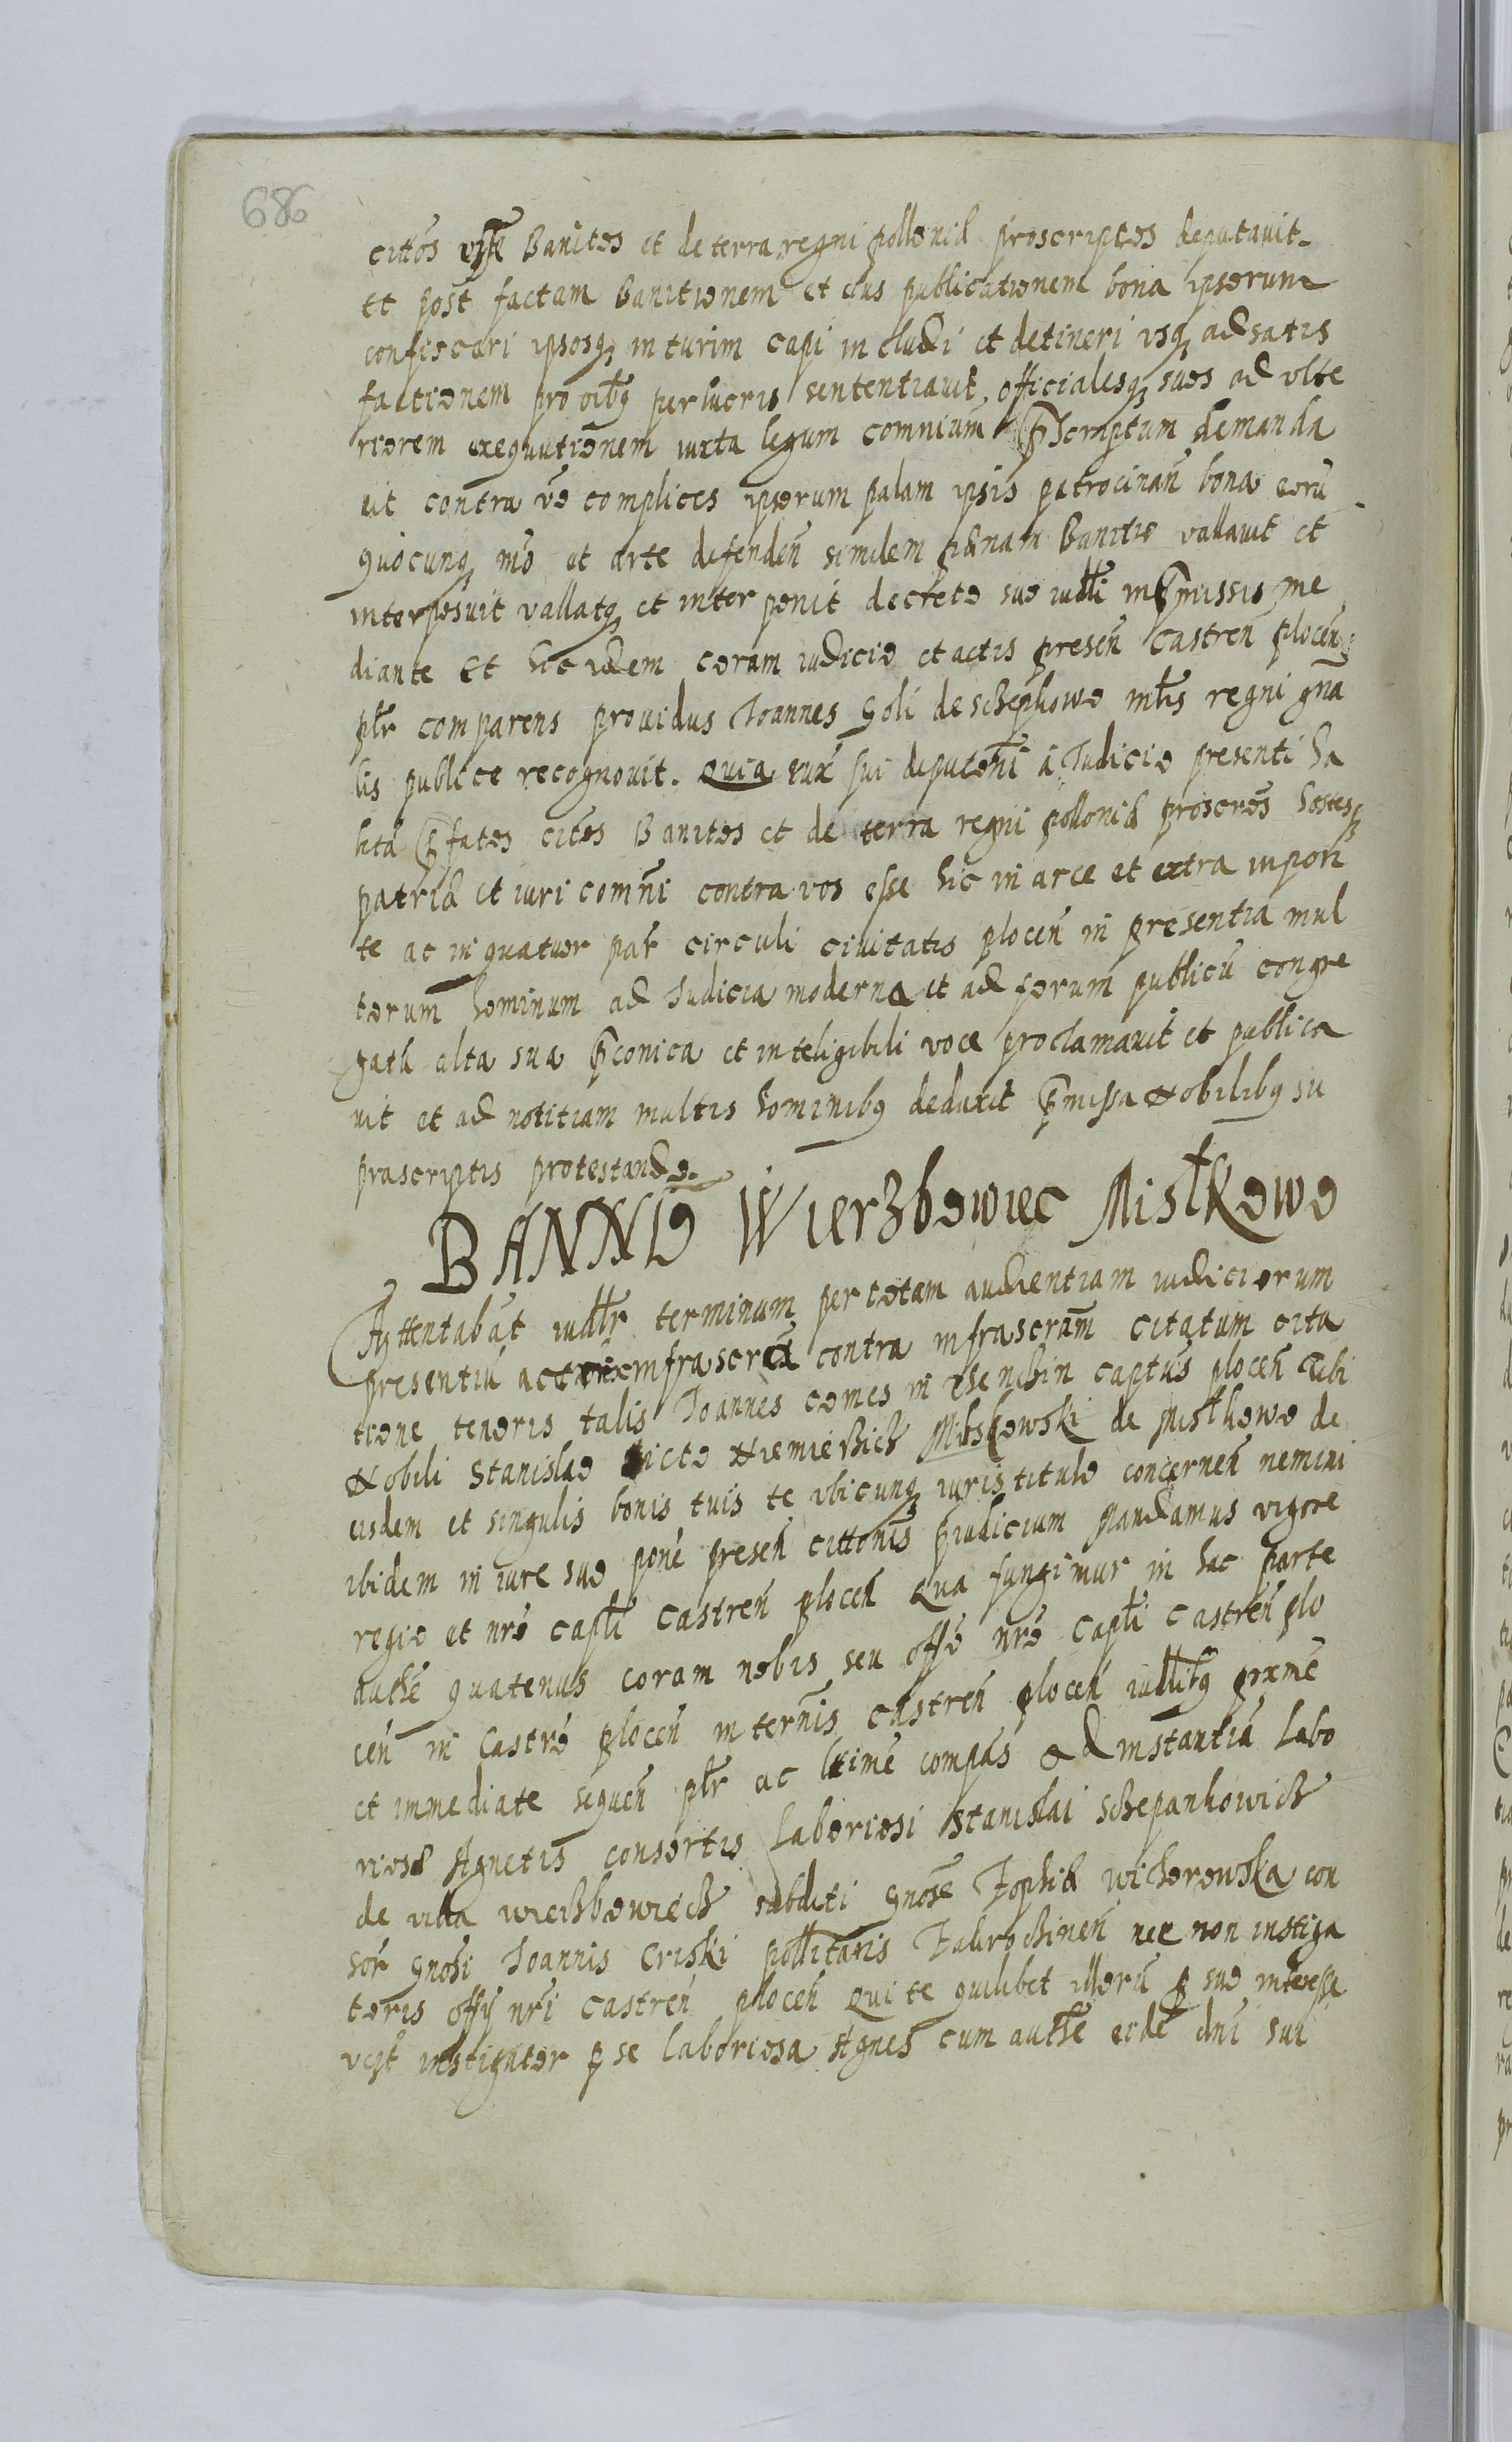 686
cittos vtse Banitos et de terra regni polloniæ proscriptos deputauit
et post factam Banitionem et eius publicationem bona ipsorum
confiscari ipsosq in turim capi includi et detineri vsq ad satis
factionem pro oibq per lucris sententiauit, officialesq suos ad vlte
riorem exequutionem iuxta legum comnium pscriptum demanda
uit contra vo complices ipsorum palam ipsis patrocinan bona eoru
quocunq mo et arte defenden similem pænam Banitio vallauit et
interposuit vallatq et interponit decreto suo iudli in pmissis me
diante Et hic idem coram iudicio et actis presen Castren plocen
plr comparens prouidus Joannes Goli de schephowo mlis regni gna
lis publice recognouit. Quia vux sui deputoni a Judicio presenti ha
bita pfatos citos Banitos et de terra regni polloniæ proscros hostesq
patriæ et iuri comni contra vos esse hic in arce et extra in pon
te ac in quatuor par circuli ciuitatis plocen in presentia mul
torum hominum ad Judicia moderna et ad forum publicu congre
gata alta sua pconica et inteligibili voce proclamauit et publica
uit et ad notitiam multis hominibq deduxit pmissa Nobilibq su
prascriptis protestando.
BANNIO Wierzbowiec Mistkowo
Attentabat iudlr terminum per totam audientiam iudiciorum
presentiu infrascra contra infrascram citatum cita
tione tenoris talis Joannes comes in captus plocen Tibi
Nobili Stanislao dicto Niemierzich Mistkowski de Mistkowo de
eisdem et singulis bonis tuis te vbicunq iuris titulo concernen nemini
ibidem in iure suo pone presen cittonis piudicium Mandamus vigore
regio et nro capli Castren plocen Qua fungimur in hac parte
authe quatenus coram nobis seu offo nro capli Castren plo
cen in Castro plocen in ternis castren plocen iudlibq prxme
et immediate sequen plr ac ltime compas Ad instantia labo
riosæ Agnetis consortis laboriosi Stanislai Schepankowich
de villa wierzbowiech subditi Gnose Zophiæ wichorowska con
sor Gnosi Joannis Criski pollitaris Zakrochinen nec non instiga
toris offy nri castren plocen Qui te quilibet illoru p suo interesse
vept instigator p se laboriosa Agnes cum authe eide dni sui